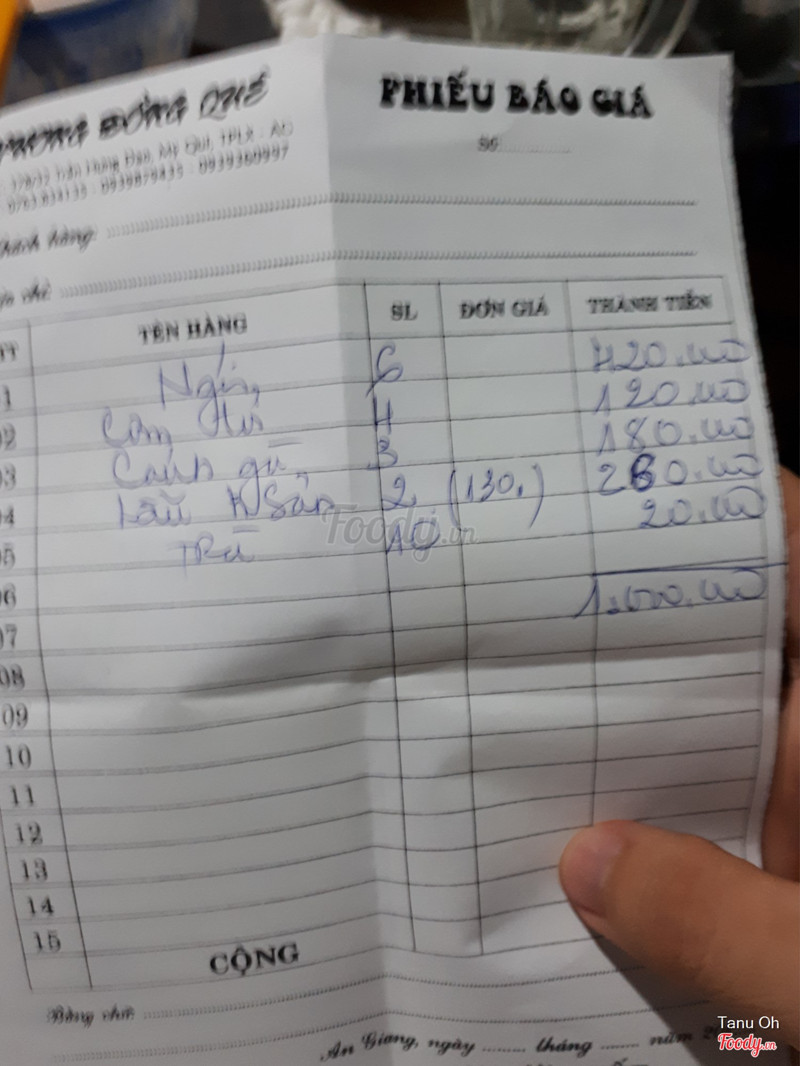 PHƯƠNG ĐỒNG QUÊ
PHIẾU BÁO GIÁ
Trần Hưng Đạo, Mỹ Quí, TPLX - AG
Số
0763.833135 - 0939879435 - 0939360997
Khách hàng:
Địa chỉ:
TT TÊN HÀNG SL ĐƠN GIÁ THÀNH TIỀN
01 6 420.000
02 Cơm 4 120.000
03 Canh gà 3 180.000
04 Lẩu H Sản 2 (130.) 260.000
05 Trà 10 20.000
06 1.000.000
07
08
09
10
11
12
13
14
15
CỘNG
Bằng chữ:
An Giang, ngày ........ tháng ....... năm 2
Foody.vn
Tanu Oh
Foody.vn